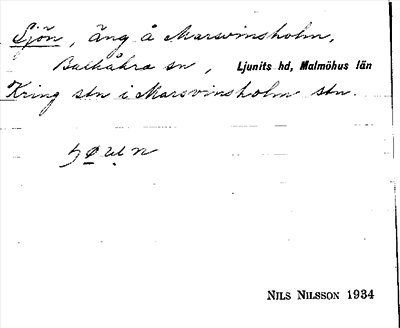 Sjön, äng å Marsvinsholm,
Balkåkra sn, Ljunits hd, Malmöhus län
Kring stn i Marsvinsholm stn.
NILS NILSSON 1934